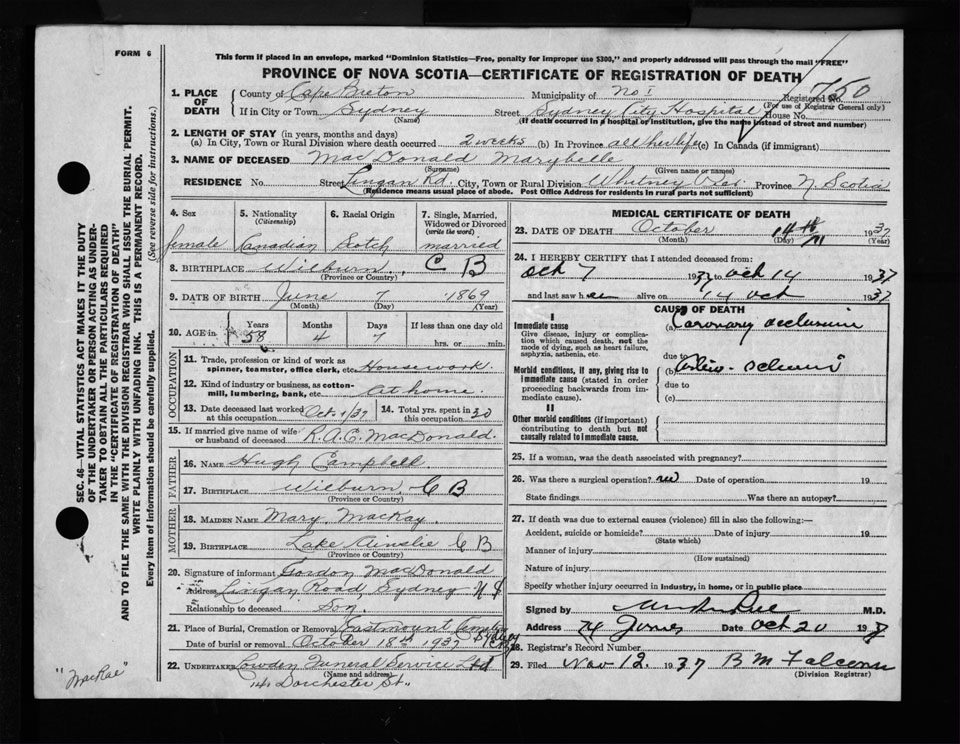 FORM 6
This form if placed in an envelope, marked "Dominion Statistics—Free, penalty for improper use $300," and properly addressed will pass through the mail "FREE"
PROVINCE OF NOVA SCOTIA—CERTIFICATE OF REGISTRATION OF DEATH
Registered No. 750
(For use of Registrar General only)
1. PLACE OF DEATH County of Cape Breton Municipality of No 1
If in City or Town Sydney Street Sydney City Hospital House No.
(Name) (If death occurred in a hospital or institution, give the name instead of street and number)
2. LENGTH OF STAY (in years, months and days)
(a) In City, Town or Rural Division where death occurred 2 weeks (b) In Province all her life (c) In Canada (if immigrant)
3. NAME OF DECEASED MacDonald Marybelle
(Surname) (Given name or names)
RESIDENCE No. Street Lingan Rd. City, Town or Rural Division Whitney Pier Province N Scotia
(Residence means usual place of abode. Post Office Address for residents in rural parts not sufficient)
4. Sex female
5. Nationality (Citizenship) Canadian
6. Racial Origin Scotch
7. Single, Married, Widowed or Divorced (write the word) married
8. BIRTHPLACE Wilburn, C B
(Province or Country)
9. DATE OF BIRTH June 7 1869
(Month) (Day) (Year)
10. AGE in Years 58 Months 4 Days 7 If less than one day old hrs. or min.
OCCUPATION
11. Trade, profession or kind of work as spinner, teamster, office clerk, etc. Housework.
12. Kind of industry or business, as cotton-mill, lumbering, bank, etc. at home.
13. Date deceased last worked at this occupation Oct 1/37 14. Total yrs. spent in this occupation 20
15. If married give name of wife or husband of deceased R.A.C. MacDonald.
FATHER
16. NAME Hugh Campbell.
17. BIRTHPLACE Wilburn, C B
(Province or Country)
MOTHER
18. MAIDEN NAME Mary MacKay.
19. BIRTHPLACE Lake Ainslie C B
(Province or Country)
20. Signature of informant Gordon MacDonald
Address Lingan Road, Sydney N S
Relationship to deceased Son.
21. Place of Burial, Cremation or Removal Eastmount Cemetery Sydney
Date of burial or removal October 18th 1937
22. UNDERTAKER Lowden Funeral Service Ltd
(Name and address)
141 Dorchester St.
MEDICAL CERTIFICATE OF DEATH
23. DATE OF DEATH October 14th 1937
(Month) (Day) (Year)
24. I HEREBY CERTIFY that I attended deceased from:
Oct 7 1937 to Oct 14 1937
and last saw h er alive on 14 Oct 1937
CAUSE OF DEATH
I
Immediate cause
Give disease, injury or complication which caused death, not the mode of dying, such as heart failure, asphyxia, asthenia, etc.
(a) Coronary occlusion
due to
Morbid conditions, if any, giving rise to immediate cause (stated in order proceeding backwards from immediate cause).
(b) Arterio-sclerosis
due to
(c)
II
Other morbid conditions (if important) contributing to death but not causally related to immediate cause.
25. If a woman, was the death associated with pregnancy?
26. Was there a surgical operation? no Date of operation 19
State findings Was there an autopsy?
27. If death was due to external causes (violence) fill in also the following:—
Accident, suicide or homicide? Date of injury 19
(State which)
Manner of injury
(How sustained)
Nature of injury
Specify whether injury occurred in industry, in home, or in public place
Signed by M.D.
Address Date Oct 20 193
28. Registrar's Record Number
29. Filed Nov 12. 1937
(Division Registrar)
SEC. 46—VITAL STATISTICS ACT MAKES IT THE DUTY
OF THE UNDERTAKER OR PERSON ACTING AS UNDERTAKER TO OBTAIN ALL THE PARTICULARS REQUIRED
IN THE "CERTIFICATE OF REGISTRATION OF DEATH"
AND TO FILE THE SAME WITH THE DIVISION REGISTRAR WHO SHALL ISSUE THE BURIAL PERMIT.
WRITE PLAINLY WITH UNFADING INK. THIS IS A PERMANENT RECORD.
Every item of information should be carefully supplied. (See reverse side for instructions.)
"MacRae"